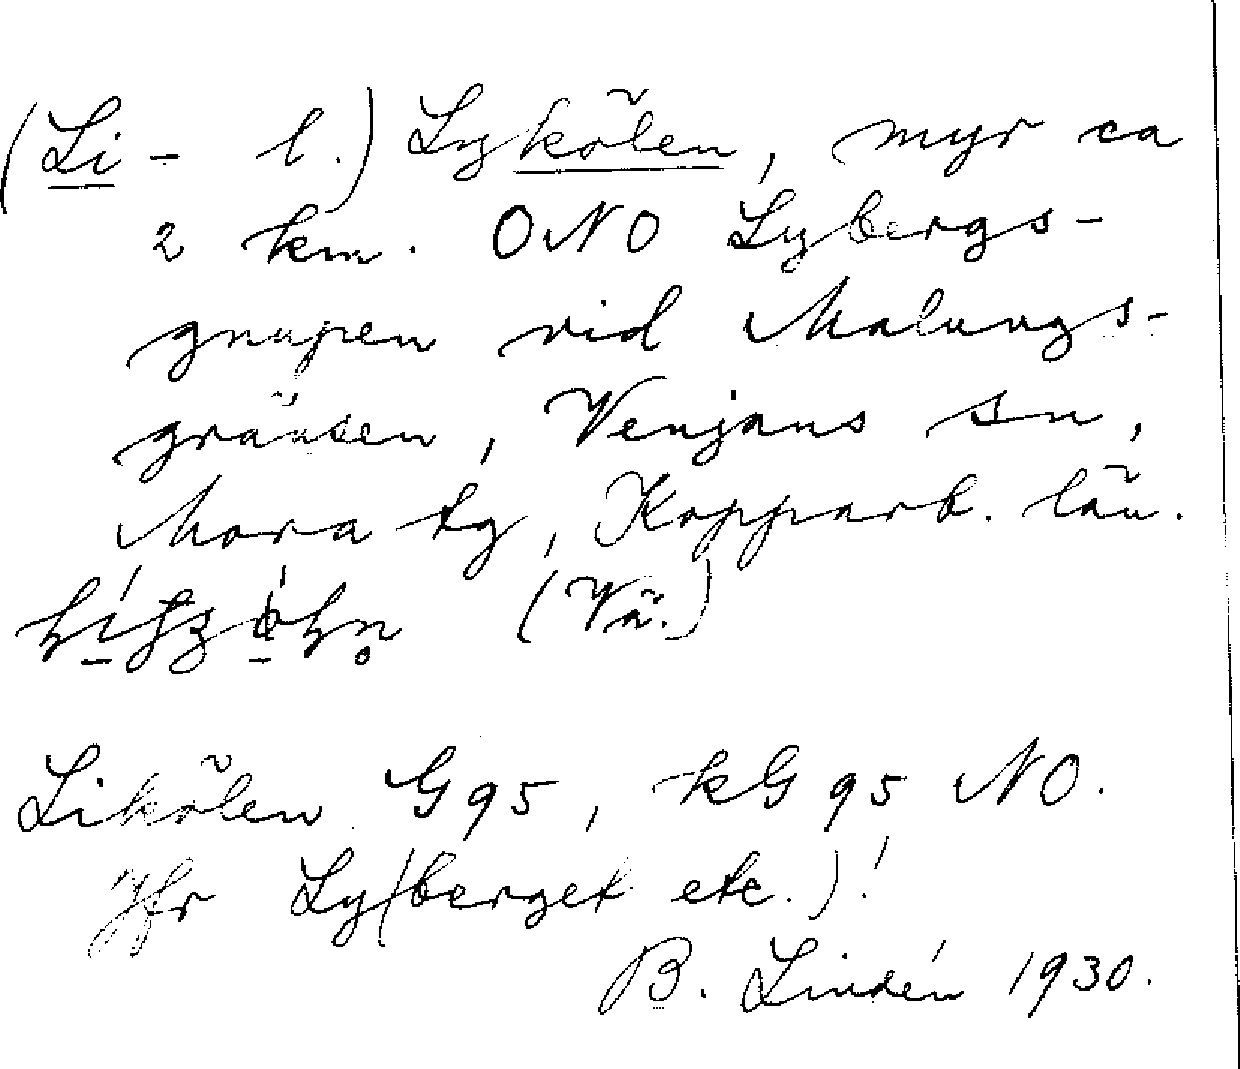 (Li- l.) Lykölen, myr ca
2 km. ONO Lybergs-
gnupen vid Malungs-
gränsen, Venjans sn,
Mora tg, Kopparb. län.
(Vä.)
Likölen G95, kG 95 NO.
Jfr Ly(berget etc.)!
B. Lindén 1930.